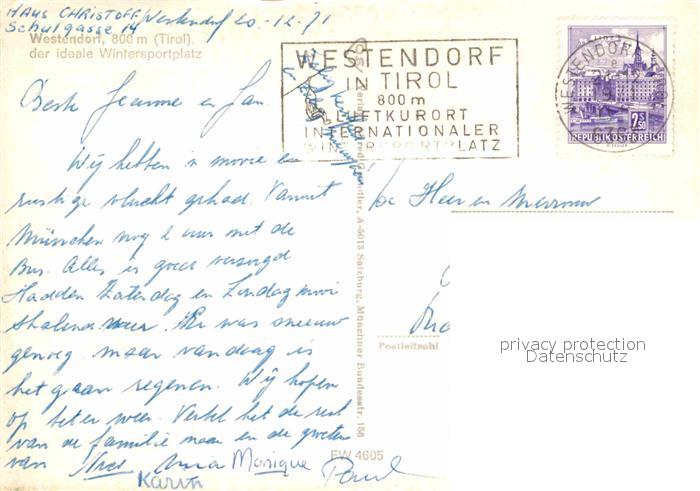 HAUS CHRISTOFF, Westendorf 20-12-71
Schulgasse 14
Westendorf, 800 m (Tirol),
der ideale Wintersportplatz
Beste Jeanne en Jan.
Wij hebben 'n mooie en
rustige vlucht gehad. Vanuit
München nog 2 uur met de
Bus. Alles is goed verzorgd
Hadden Zaterdag en Zondag mooi
weer. Er was sneeuw
genoeg maar vandaag is
het gaan regenen. Wij hopen
op beter weer. Vertel het de rest
van de familie maar en de groeten
van Anna Monique Paul
Karin
WESTENDORF
IN TIROL
800 m
LUFTKURORT
INTERNATIONALER
WINTERSPORTPLATZ
WESTENDORF
2.50
REPUBLIK ÖSTERREICH
A-5013 Salzburg, Münchner Bundesstr. 156
De Heer en Mevrouw
Postleitzahl
privacy protection
Datenschutz
FW 4605